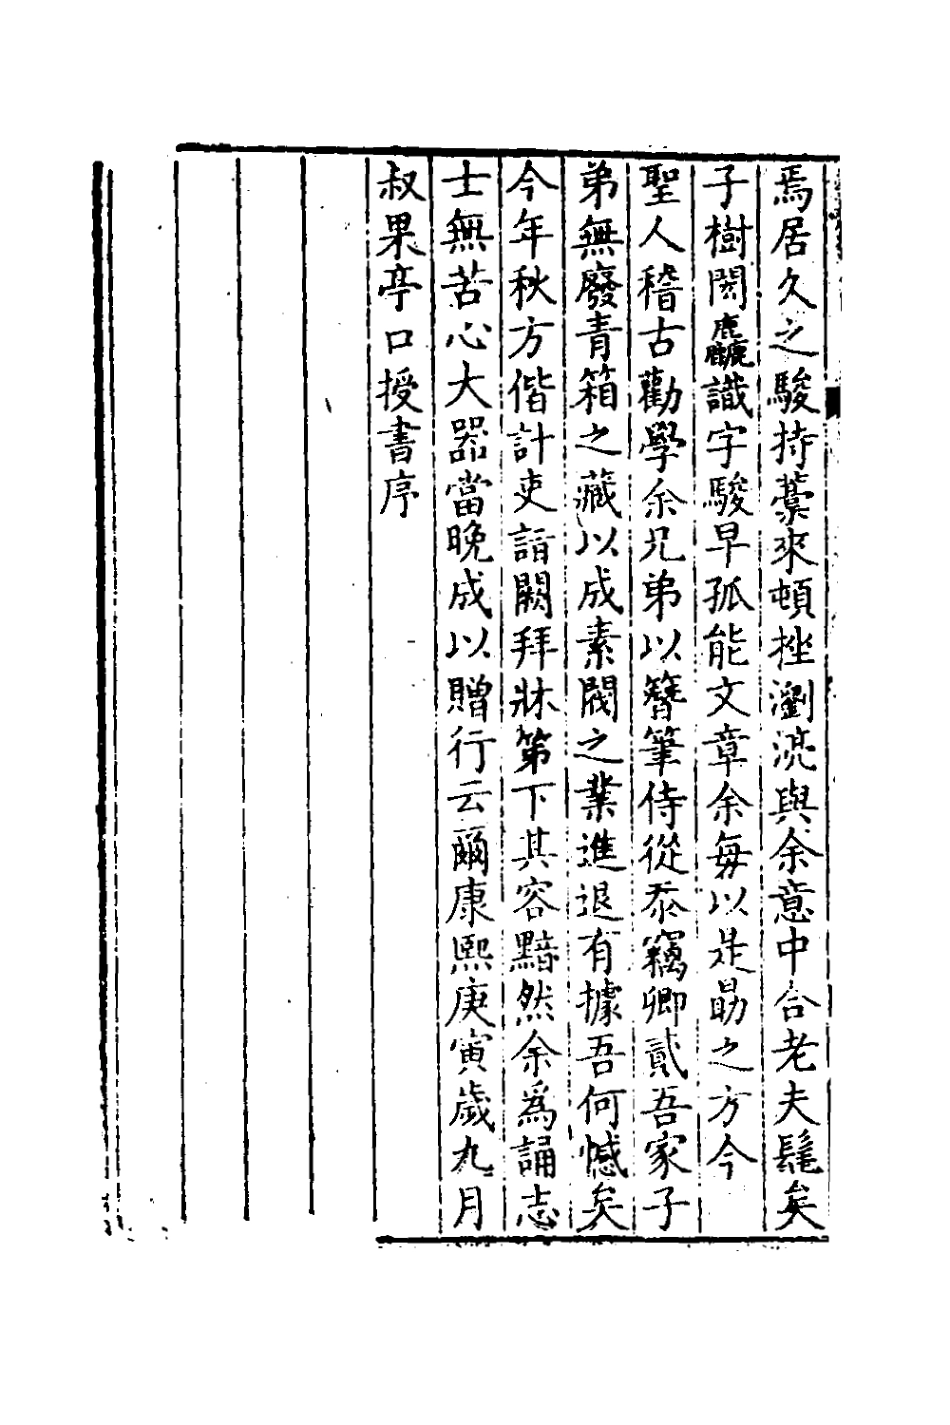 焉居久之駿持藁來頓挫瀏浣與余意中合老夫髦矣
子樹閎麤識字駿早孤能文章余每以是勗之方今
聖人稽古勸學余兄弟以簪筆侍從忝竊卿貳吾家子
弟無廢青箱之藏以成素閥之業進退有據吾何憾矣
今年秋方偕計吏詣闕拜牀第下其容黯然余為誦志
士無苦心大器當晚成以贈行云爾康熙庚寅歲九月
叔果亭口授書序